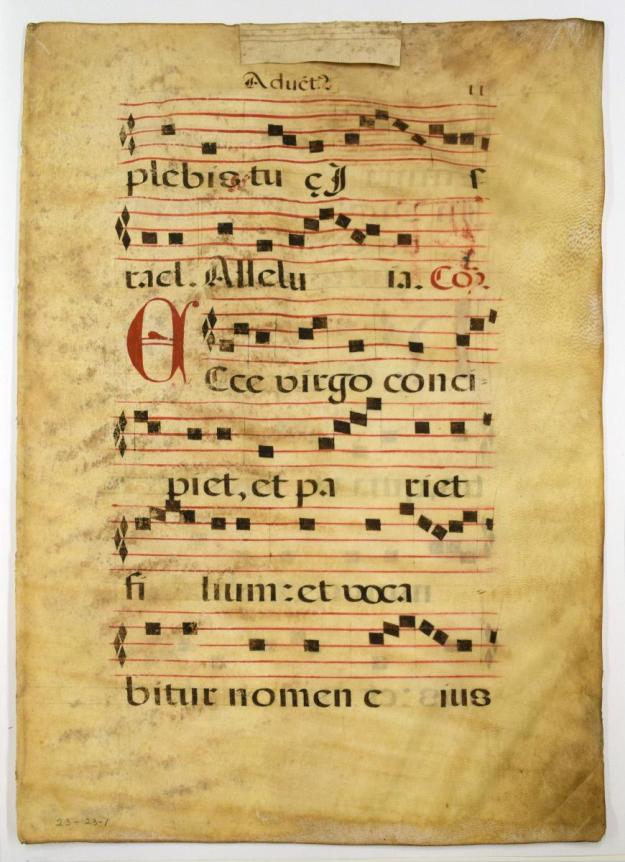 Aduēt2 11
plebis tu ę J s
rael. Allelu ia. Cō2.
Ecce virgo conci-
piet, et pa riet
fi lium: et voca
bitur nomen e ius
23-23-1